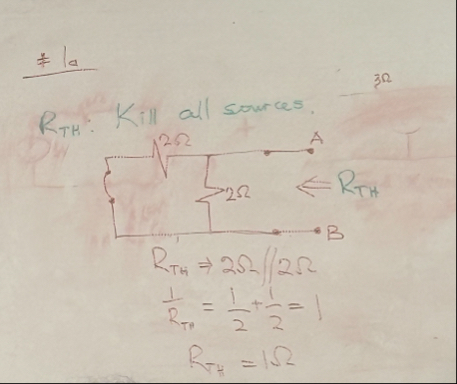 # 1a
3Ω
R_TH: Kill all sources.
2Ω
A
2Ω
⇐ R_TH
B
R_TH ⇒ 2Ω//2Ω
1/R_TH = 1/2 + 1/2 = 1
R_TH = 1Ω